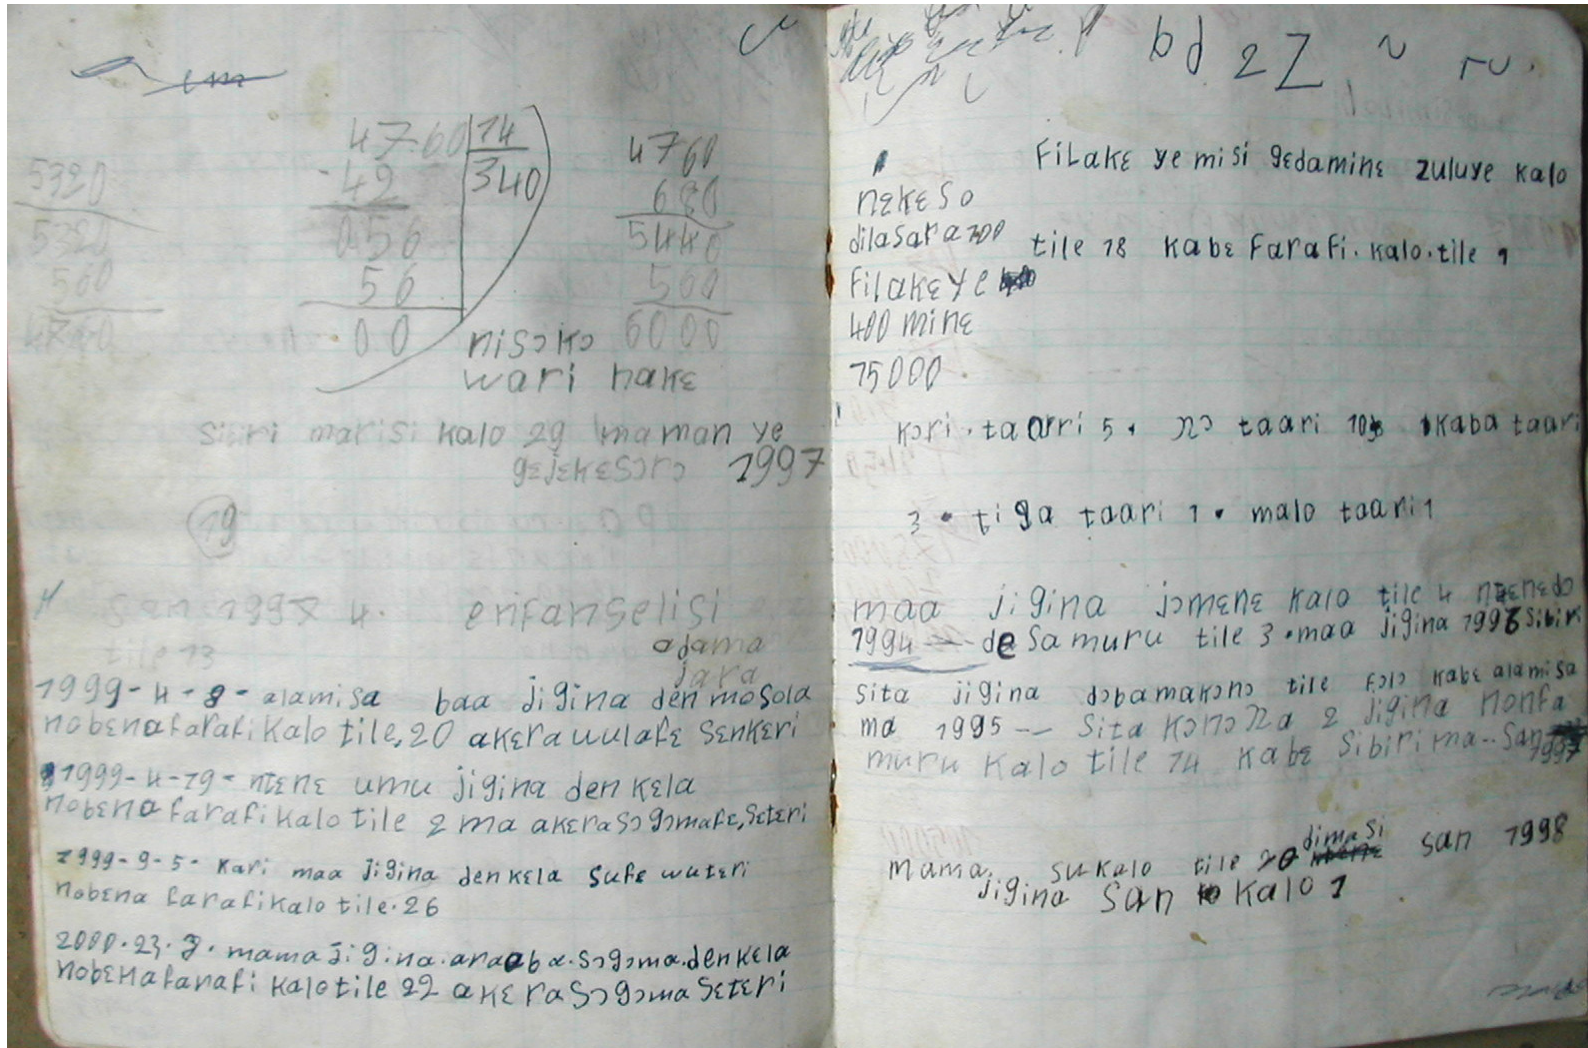 47.60 14
- 42 340
056
56
00
5320
5320
560
4760
4760
680
5440
560
6000
nisɔkɔ
wari hakɛ
sibiri marisi kalo 29 maman ye
1997
19
san 1997 4. enfangelisi
tile 13 adama
jara
1999-4-8- alamisa baa jigina den mosola
nobɛna farafi kalo tile, 20 akɛra wulafɛ sɛnkɛri
1999-4-19- ntɛnɛ umu jigina den kɛla
nobɛna farafi kalo tile 2 ma akɛra sɔgɔmafɛ, sɛtɛri
1999-9-5- kari maa jigina den kɛla sufɛ wutɛri
nobɛna farafi kalo tile. 26
2000.23.7. mama jigina. araba. sɔgɔma. den kɛla
nobɛna farafi kalo tile 22 akɛra sɔgɔma sɛtɛri
bd 2Z
filakɛ ye misi gɛdaminɛ zuluye kalo
nɛkɛso
dilasara 300
tile 18 kabɛ farafi. kalo. tile 1
filakɛ ye
400 minɛ
75000
kɔri. taarri 5. ɲɔ taari 10 kaba taari
3 . tiga taari 1 . malo taari 1
maa jigina jɔmɛnɛ kalo tile 4 ntɛnɛdɔ
1994 — de samuru tile 3 . maa jigina 1996 sibiri
sita jigina dɔbamakɔnɔ tile fɔlɔ kabɛ alamisa
ma 1995 -- sita kɔnɔɲa 2 jigina nonfa
muru kalo tile 14 kabɛ sibiri ma -- san 1997
mama. su kalo tile dimasi san 1998
jigina san kalo 1